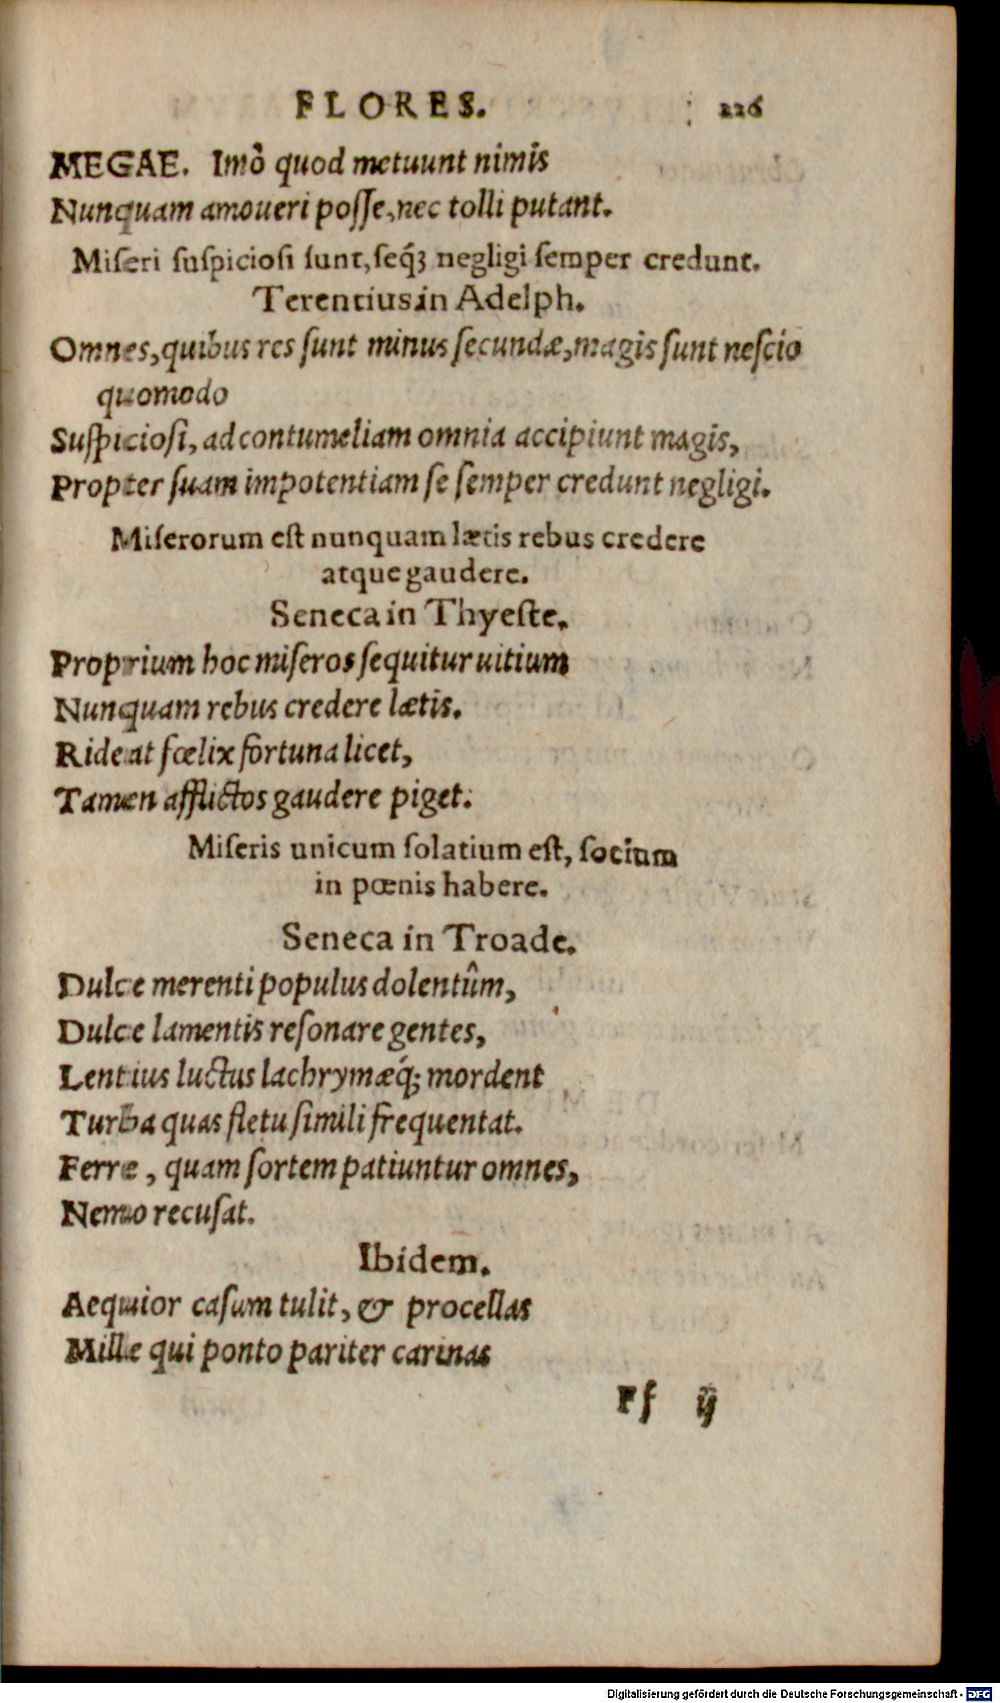 FLORES. 226
MEGAE. Imò quod metuunt nimis
Nunquam amoueri posse, nec tolli putant.
Miseri suspiciosi sunt, seq́ꝫ negligi semper credunt.
Terentius in Adelph.
Omnes, quibus res sunt minus secundæ, magis sunt nescio
quomodo
Suspiciosi, ad contumeliam omnia accipiunt magis,
Propter suam impotentiam se semper credunt negligi.
Miserorum est nunquam lætis rebus credere
atque gaudere.
Seneca in Thyeste.
Proprium hoc miseros sequitur uitium
Nunquam rebus credere lætis.
Rideat fœlix fortuna licet,
Tamen afflictos gaudere piget.
Miseris unicum solatium est, socium
in pœnis habere.
Seneca in Troade.
Dulce merenti populus dolentûm,
Dulce lamentis resonare gentes,
Lentius luctus lachrymæq́; mordent
Turba quas fletu simili frequentat.
Ferre, quam sortem patiuntur omnes,
Nemo recusat.
Ibidem.
Aequior casum tulit, & procellas
Mille qui ponto pariter carinas
Ff ij
Digitalisierung gefördert durch die Deutsche Forschungsgemeinschaft - DFG